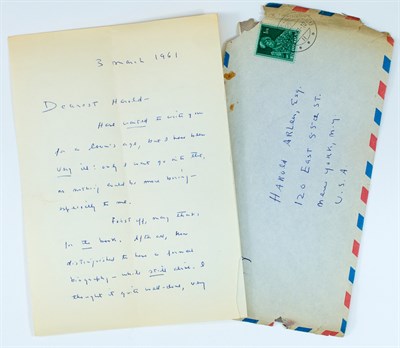 3 March 1961
Dearest Harold—
Have wanted to write you
for a coon's age, but I have been
very ill: only I won't go into this,
as nothing could be more boring—
especially to me.
First off, many thanks
for the book. After all, how
distinguished to have a formal
biography—while still alive. I
thought it quite well-done, very
HAROLD ARLEN, Esq.
120 EAST 55th ST.
New York, N.Y
U.S.A